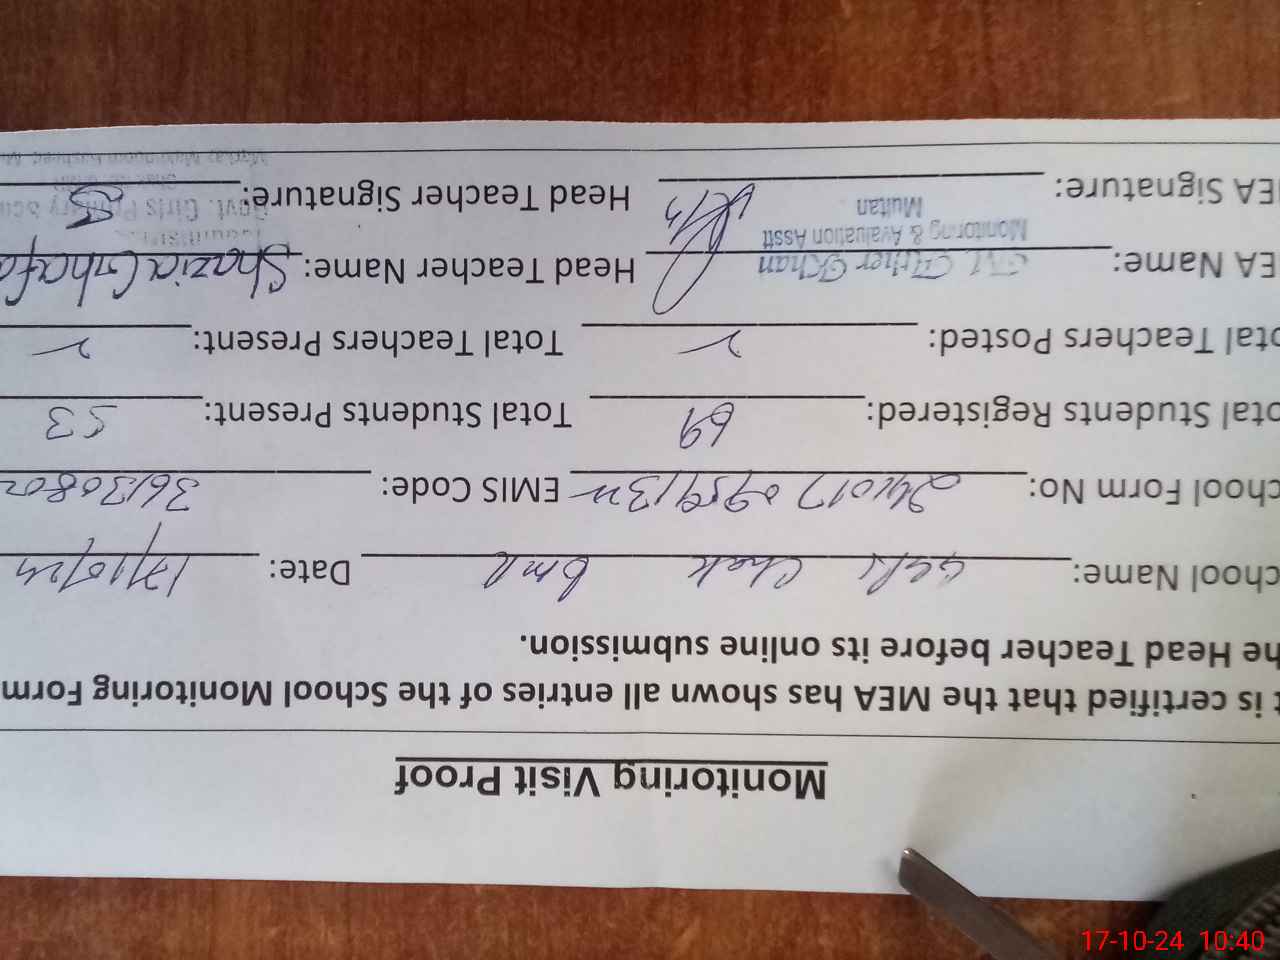 Monitoring Visit Proof
t is certified that the MEA has shown all entries of the School Monitoring Form
he Head Teacher before its online submission.
chool Name: GGPS Chak 6ml Date: 17/10/24
chool Form No: EMIS Code: 36130802
otal Students Registered: 69 Total Students Present: 53
otal Teachers Posted: 2 Total Teachers Present: 2
EA Name: Khan Head Teacher Name: Shazia Ghafa
Monitoring & Evaluation Asstt
Multan
EA Signature: Head Teacher Signature:
Govt. Girls Primary
17-10-24 10:40